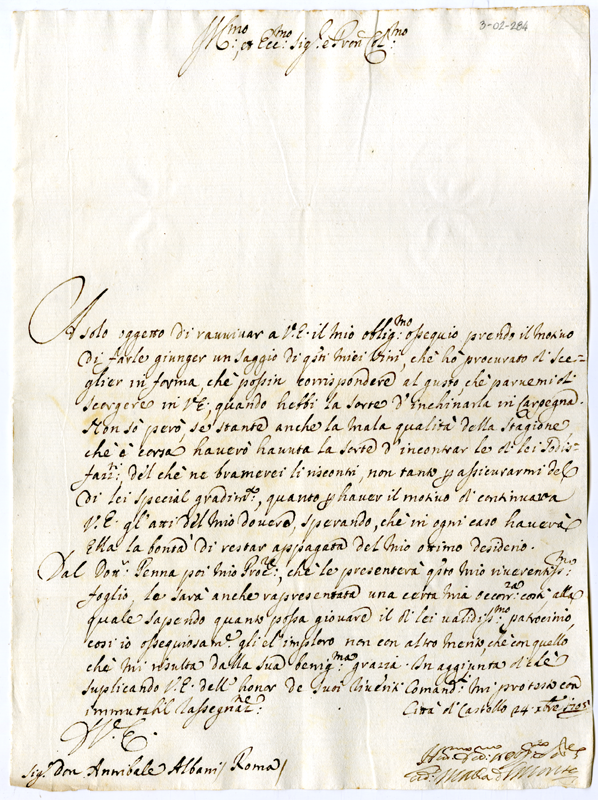 3-02-284
Ill.mo: et Ecc.mo: Sig.r e Pron Col.mo:
A solo oggetto di ravvivar a V.E. il mio oblig.mo: ossequio prendo il motivo
di farle giunger un saggio di q.sti miei Vini, che hò procurato di sce=
glier in forma, che possin corrispondere al gusto che parvemi di
scorgere in V.E. quando hebbi la sorte d'inchinarla in Carpegna.
Non sò però, se stante anche la mala qualità della Stagione
che è corsa haverò havuta la sorte d'incontrar le di lei sodis=
faz.ni: del che ne bramerei li riscontri, non tanto p assicurarmi del
di lei special gradim.to, quanto p haver il motivo di continuar a
V.E. gl'atti del mio dovere, sperando, che in ogni caso haverà
Ella la bontà di restar appagata del mio ottimo desiderio.
Dal Dott.r Penna poi mio Pro.re: che le presenterà q.sto mio riverentiss.mo:
foglio, le sarà anche rapresentata una certa mia occorr.za: costì alla
quale sapendo quanto possa giovare il di lei validiss.mo: patrocinio,
così io ossequiosam.te gli el'imploro non con altro merito, che con quello
che mi risulta dalla sua benig.ma: grazia. In aggiunta di che
suplicando V.E. dell'honor de suoi riveriti Comand.ti: mi protesto con
immutabil rassegnaz.e: Città di Castello 24 xbre 1705
D V.E.
Sig.r Don Annibale Albani / Roma /